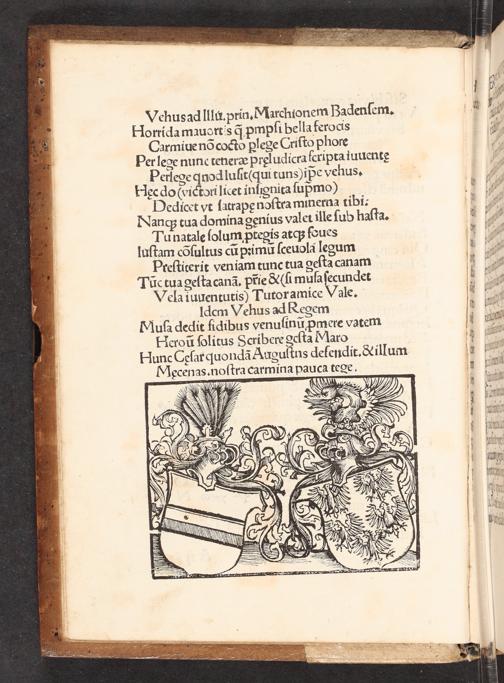 Vehus ad Illu̅. prin. Marchionem Badensem.
Horrida mauortis q̃ p̱mpsi bella ferocis
Carmiue nõ cocto p̱lege Cristo phore
Per lege nunc teneræ preludicra scripta iuuentę
Perlege qnod lusit (qui tuns) ip̃e vehus.
Hęc do (victori licet insignita sup̱mo)
Dedicet vt satrapę nostra minerna tibi:
Nanqȝ tua domina genius valet ille sub hasta.
Tu natale solum, p̱tegis atqȝ foues
Iustam cõsultus cũ primũ sceuola legum
Prestiterit veniam tunc tua gesta canam
Tũc tua gesta canã. pr̃ie & (si musa secundet
Vela iuuentutis) Tutor amice Vale.
Idem Vehus ad Regem
Musa dedit fidibus venusinũ p̱mere vatem
Heroũ solitus Scribere gesta Maro
Hunc Cęsar quondã Augustns defendit. & illum
Męcenas. nostra carmina pauca tege.